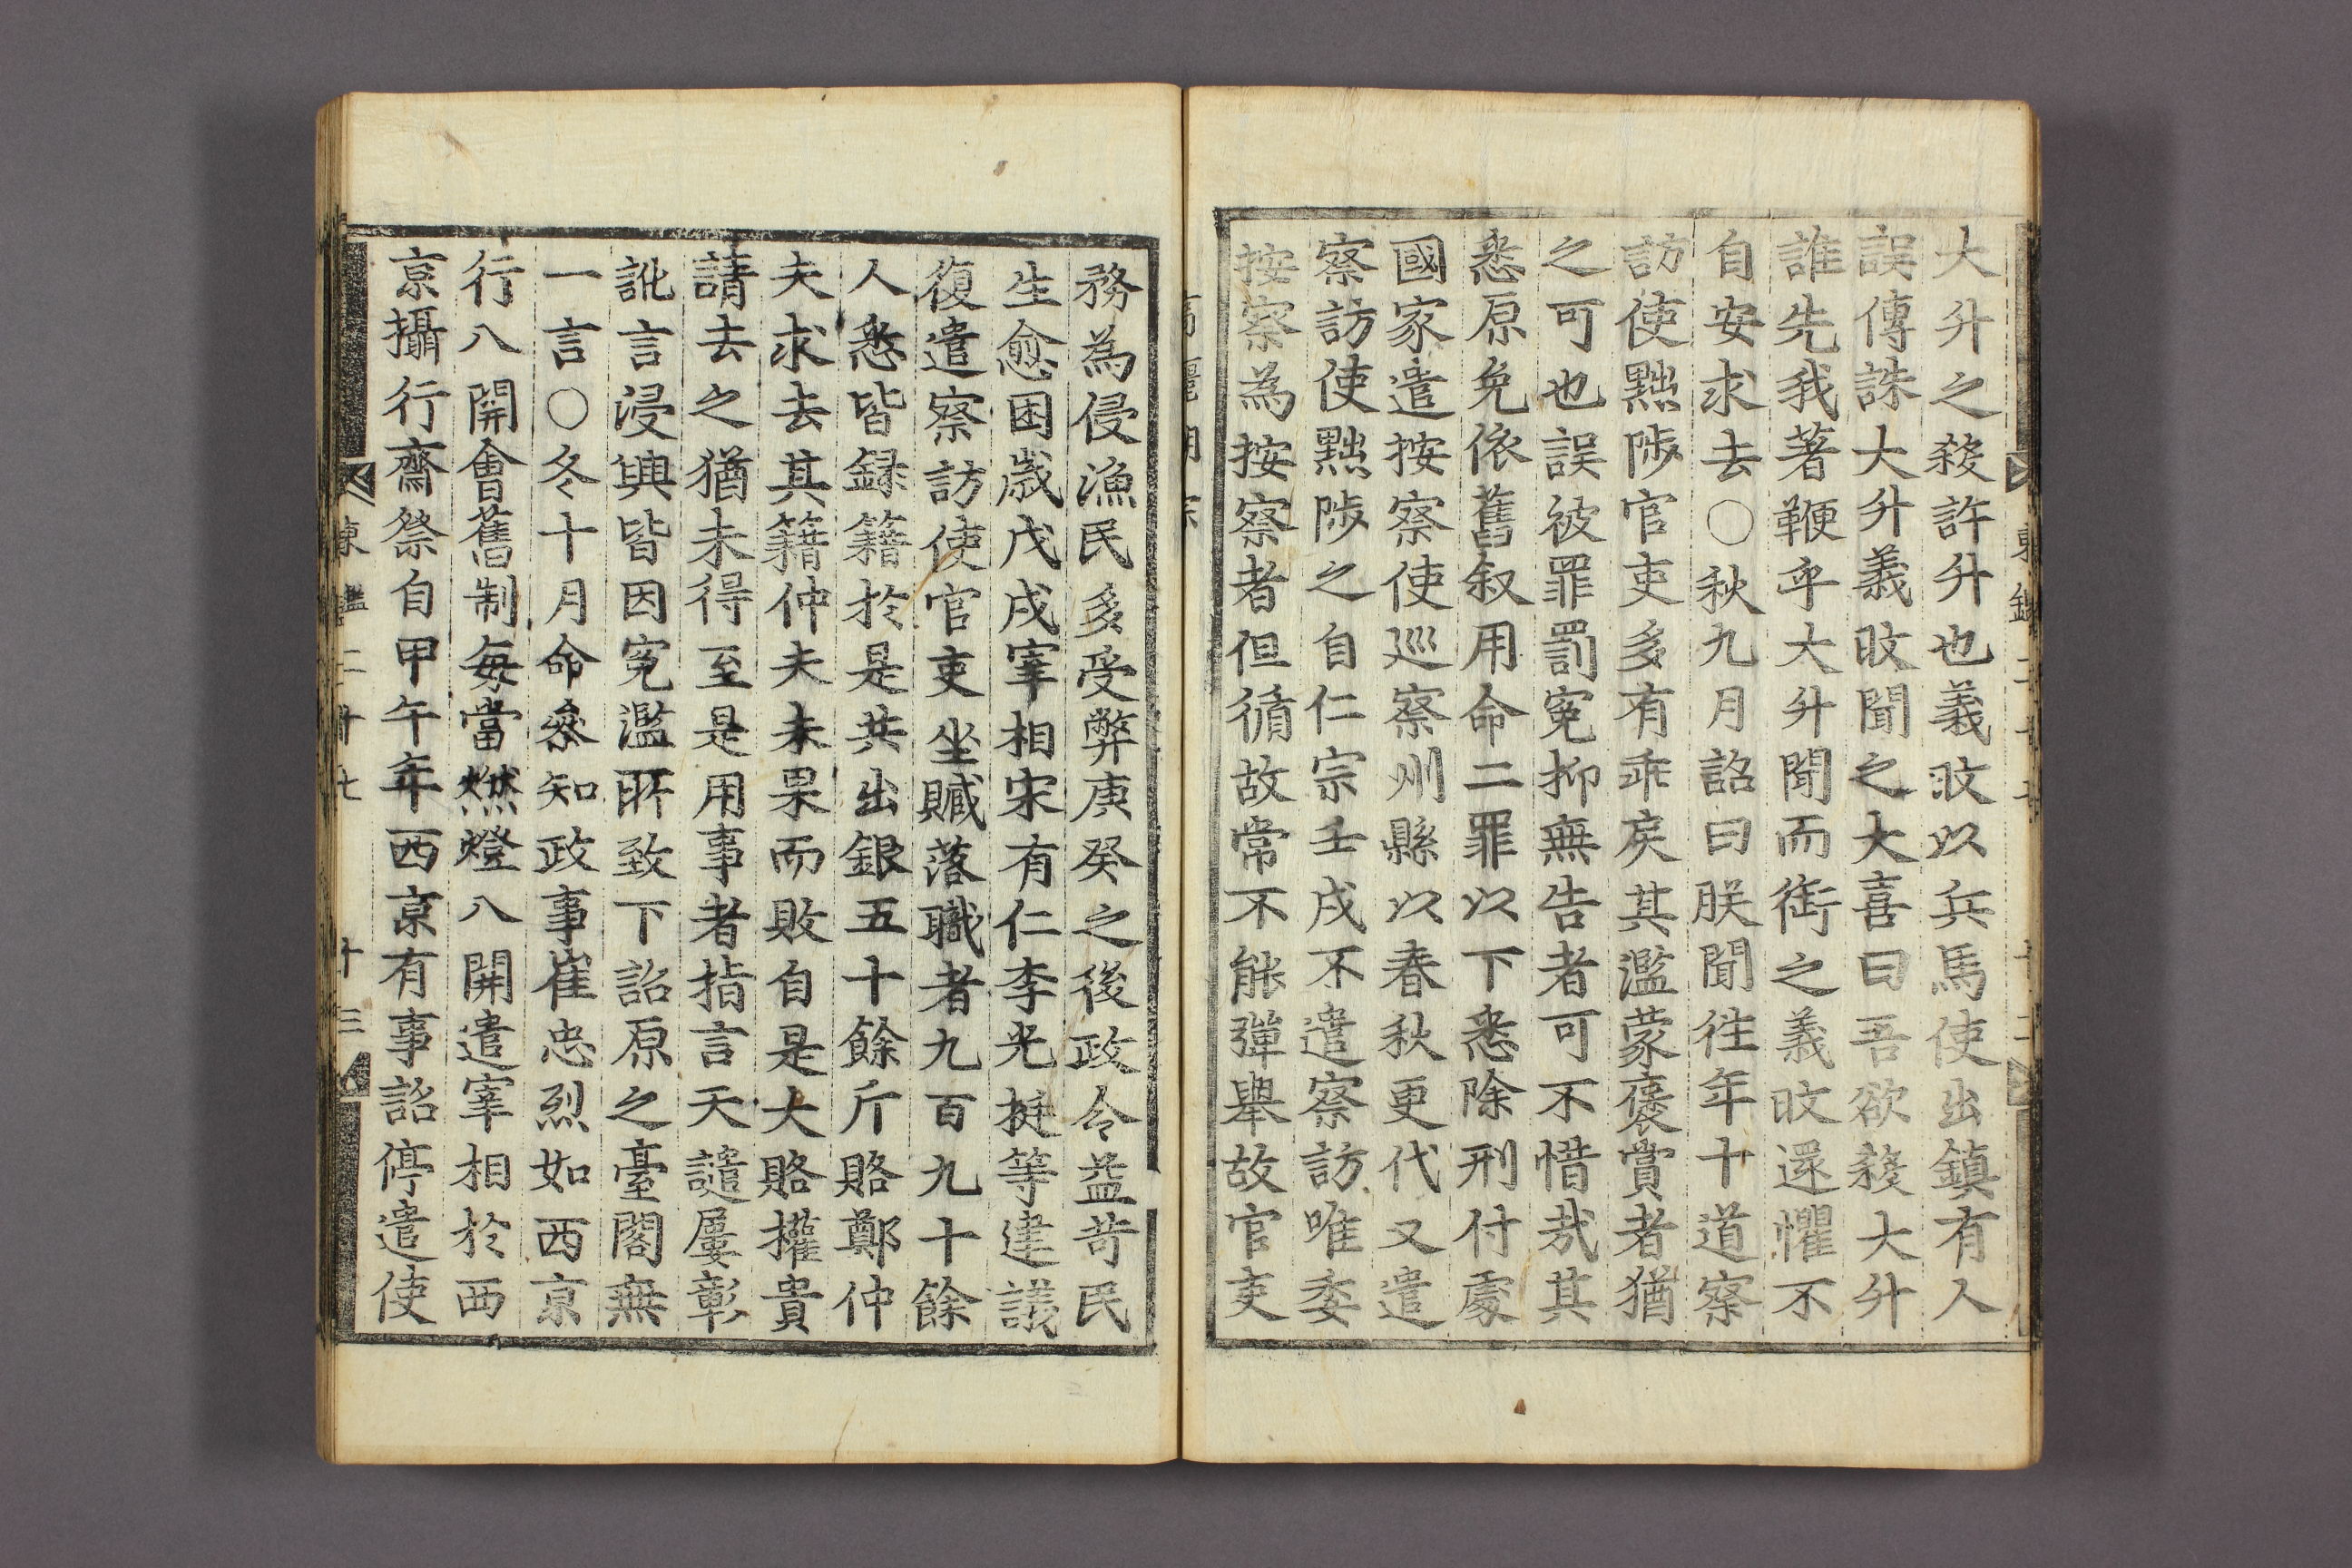 大升之殺許升也義旼以兵馬使出鎮有人
誤傳誅大升義旼聞之大喜曰吾欲殺大升
誰先我著鞭乎大升聞而銜之義旼還懼不
自安求去○秋九月詔曰朕聞徃年十道察
訪使黜陟官吏多有乖戾其濫蒙褒賞者猶
之可也誤被罪罰寃抑無告者可不惜㦲其
悉原免依舊叙用命二罪以下悉除刑付處
國家遣按察使巡察州縣以春秋更代又遣
察訪使黜陟之自仁宗壬戌不遣察訪唯委
按察為按察者但循故常不能彈舉故官吏
務為侵漁民多受弊庚癸之後政令益苛民
生愈困歲戊戌宰相宋有仁李光挺等建議
復遣察訪使官吏坐贓落職者九百九十餘
人悉皆録籍於是共出銀五十餘斤賂鄭仲
夫求去其籍仲夫未果而敗自是大賂權貴
請去之猶未得至是用事者指言天譴屢彰
訛言浸興皆因寃濫所致下詔原之臺閣無
一言○冬十月命叅知政事崔忠烈如西京
行八關會舊制每當燃燈八關遣宰相於西
京攝行齋祭自甲午年西京有事詔停遣使
東鑑二十七
十三